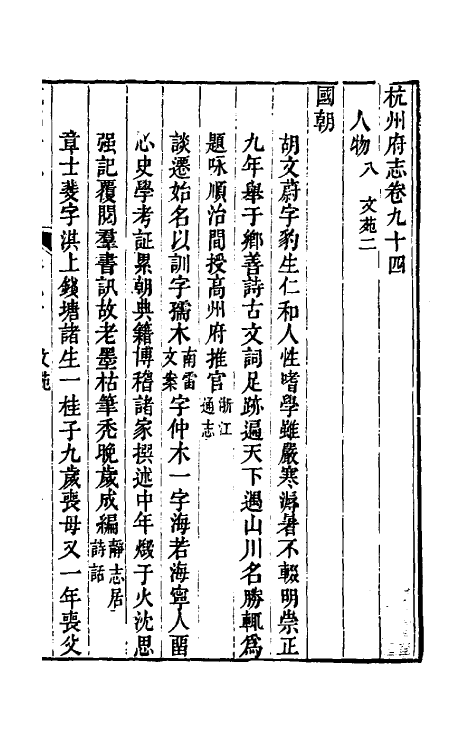 杭州府志卷九十四
人物八 文苑二
國朝
胡文蔚字豹生仁和人性嗜學雖嚴寒溽暑不輟明崇正
九年舉于鄉善詩古文詞足跡遍天下遇山川名勝輒為
題咏順治間授高州府推官浙江通志
談遷始名以訓字孺木南雷文案字仲木一字海若海寧人畱
心史學考証累朝典籍博稽諸家撰述中年燬于火沈思
强記覆閱羣書訊故老墨枯筆禿晚歲成編靜志居詩話
章士斐字淇上錢塘諸生一桂子九歲喪母又一年喪父
文苑